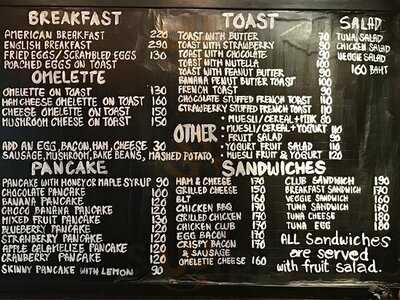 BREAKFAST
AMERICAN BREAKFAST 220
ENGLISH BREAKFAST 290
FRIED EGGS/SCRAMBLED EGGS 130
POACHED EGGS ON TOAST
OMELETTE
OMELETTE ON TOAST 130
HAM CHEESE OMELETTE ON TOAST 160
CHEESE OMELETTE ON TOAST 150
MUSHROOM CHEESE ON TOAST 150
ADD AN EGG, BACON, HAM, CHEESE 30
SAUSAGE, MUSHROOM, BAKE BEANS, MASHED POTATO,
PANCAKE
PANCAKE WITH HONEY OR MAPLE SYRUP 90
CHOCOLATE PANCAKE 100
BANANA PANCAKE 120
CHOCO BANANA PANCAKE
MIXED FRUIT PANCAKE
BLUEBERRY PANCAKE 120
STRANBERRY PANCAKE
APPLE CALAMELIZE PANCAKE 120
CRANBERRY PANCAKE
SKINNY PANCAKE WITH LEMON 90
TOAST
TOAST WITH BUTTER 70
TOAST WITH STRAWBERRY
TOAST WITH CHOCOLATE
TOAST WITH NUTELLA
TOAST WITH PEANUT BUTTER
BANANA PENUT BUTTER TOAST
FRENCH TOAST
CHOCOLATE STUFFED FRENCH TOAST
STRAWBERRY/STUFFED FRENCH TOAST
OTHER : MUESLI/CEREAL+MILK 80
: MUESLI/CEREAL+YOGURT 110
: FRUIT SALAD 90
: YOGURT FRUIT SALAD 110
: MUESLI FRUIT & YOGURT 120
SALAD
TUNA SALAD
CHICKEN SALAD
VEGGIE SALAD
160 BAHT
SANDWICHES
HAM & CHEESE 170
GRILLED CHEESE 150
BLT 160
CHICKEN BBQ 170
GRILLED CHICKEN 170
CHICKEN CLUB 170
EGG BACON
CRISPY BACON 170
& SAUSAGE
OMELETTE CHEESE 160
CLUB SANDWICH 190
BREAKFAST SANDWICH 170
VEGGIE SANDWICH 160
TUNA SANDWICH 170
TUNA CHEESE 180
TUNA EGG 180
ALL Sandwiches
are served
with fruit salad.